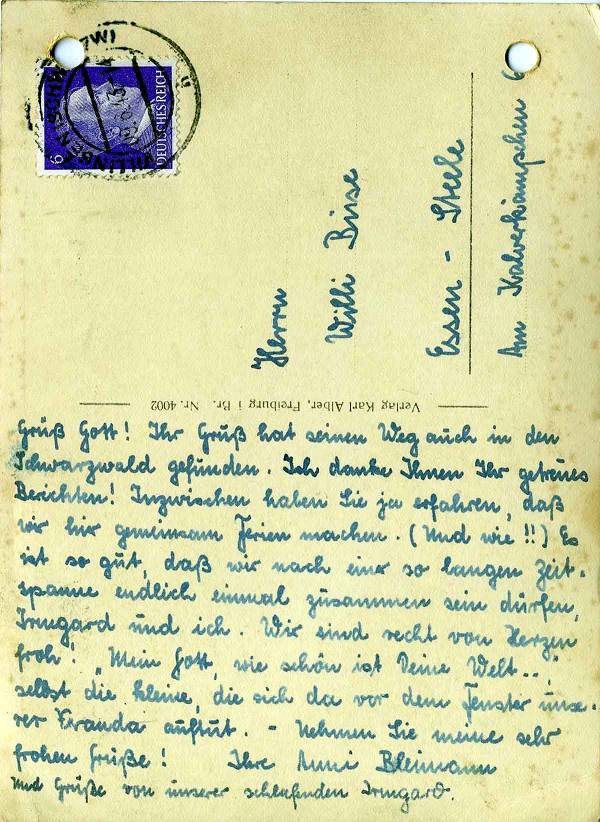 VILLINGEN (SCHWARZW)
6
DEUTSCHES REICH
Herrn
Willi Büse
Essen - Steele
Am Kalverkämpchen 6
Verlag Karl Alber, Freiburg i Br. Nr. 4002
Grüß Gott! Ihr Gruß hat seinen Weg auch in den
Schwarzwald gefunden. Ich danke Ihnen Ihr getreues
Berichten! Inzwischen haben Sie ja erfahren, daß
wir hir gemeinsam Ferien machen. (Und wie !!!) Es
ist so gut, daß wir nach einer so langen Zeit-
spanne endlich einmal zusammen sein dürfen,
Irmgard und ich. Wir sind recht von Herzen
froh! „Mein Gott, wie schön ist Deine Welt..,"
selbst die kleine, die sich da vor dem Fenster unse-
rer Veranda auftut. - Nehmen Sie meine sehr
frohen Grüße! Ihre Anni Bleimann
Und Grüße von unserer schlafenden Irmgard.